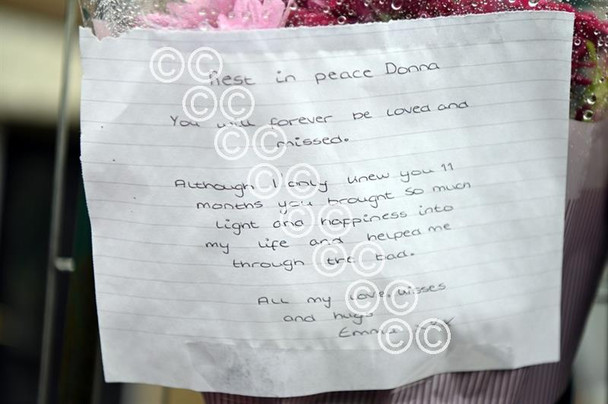 Rest in peace Donna
You will forever be loved and
missed.
Although I only knew you 11
months you brought so much
light and happiness into
my life and helped me
through the bad.
All my love, kisses
and hugs
Emma